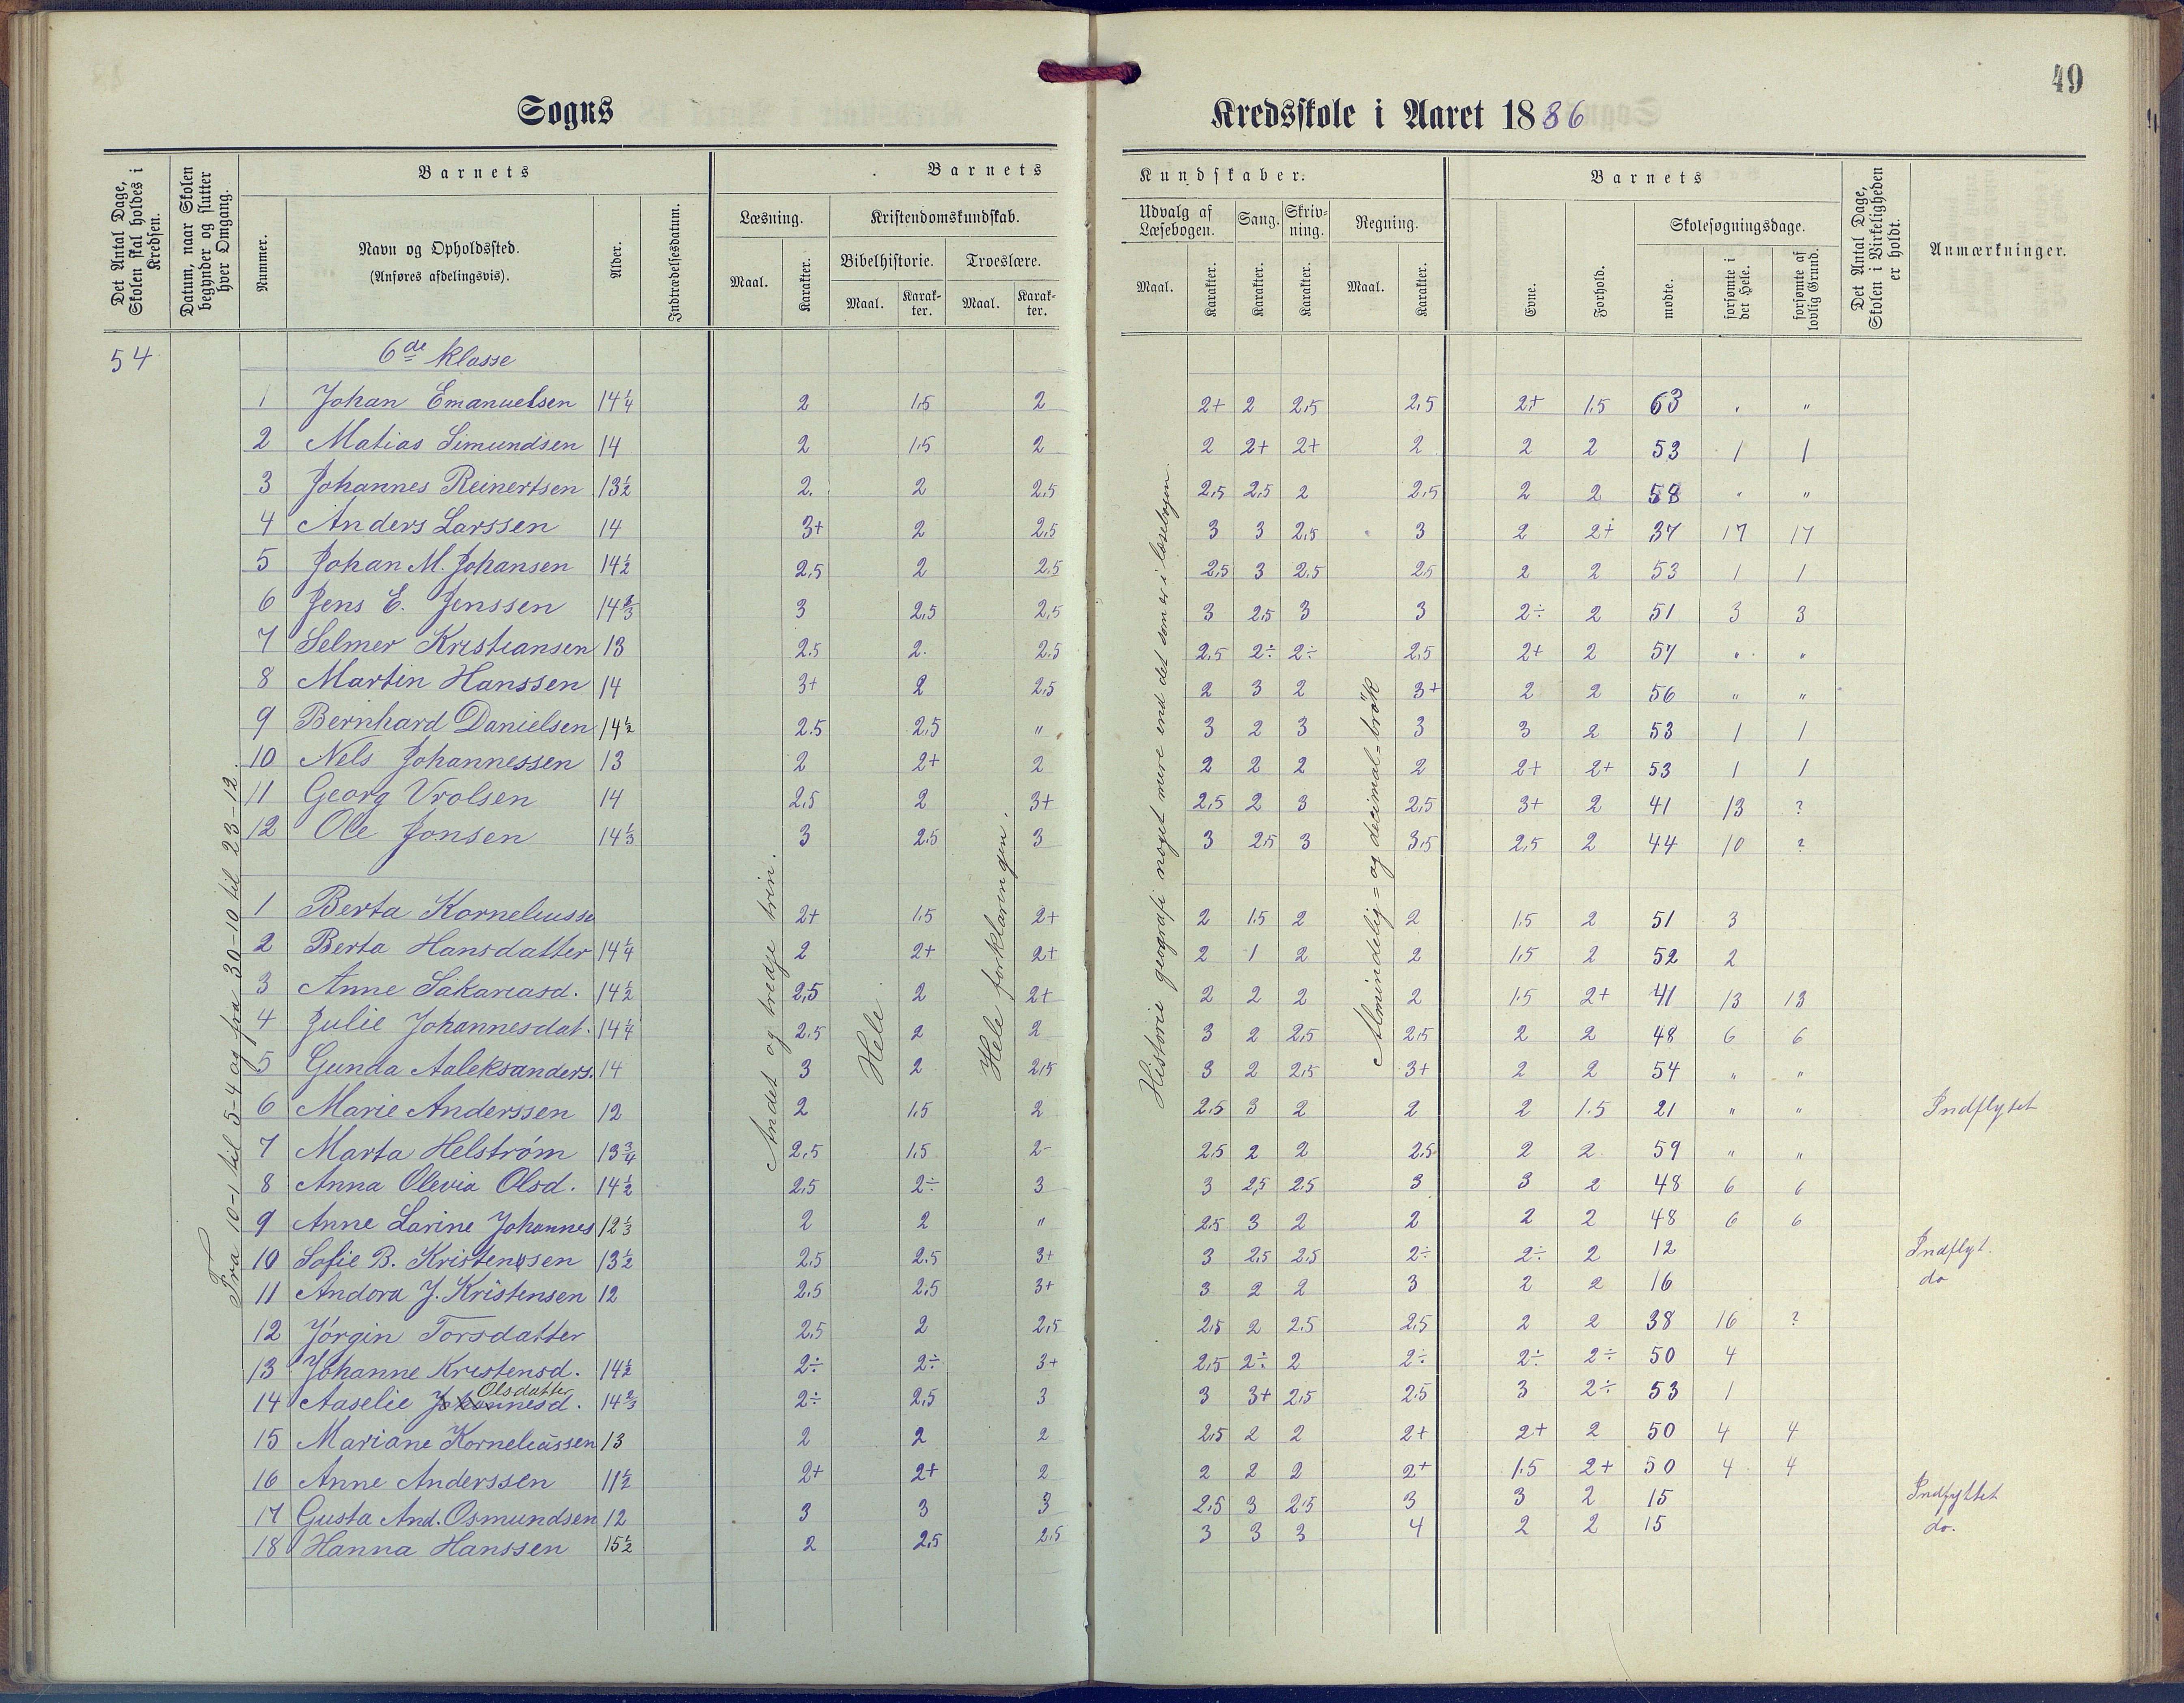 49
Sogns Kredsskole i Aaret 1886
Det Antal Dage, Skolen skal holdes i Kredsen.
Datum, naar Skolen begynder og slutter hver Omgang.
Barnets
Nummer.
Navn og Opholdssted.
(Anføres afdelingsvis).
Alder.
Indtrædelsesdatum.
Barnets Kundskaber.
Læsning.
Maal.
Karakter.
Kristendomskundskab.
Bibelhistorie.
Maal.
Karakter.
Troeslære.
Maal.
Karakter.
Udvalg af Læsebogen.
Maal.
Karakter.
Sang.
Karakter.
Skrivning.
Karakter.
Regning.
Maal.
Karakter.
Barnets
Evne.
Forhold.
Skolesøgningsdage.
mødte.
forsømte i det Hele.
forsømte af lovlig Grund.
Det Antal Dage, Skolen i Virkeligheden er holdt.
Anmærkninger.
54
6de klasse
Fra 10-1 til 5-4 og fra 30-10 til 23-12.
Andet og tredje trin.
Hele
Hele forklaringen.
Historie geografi noget mere end det som er i læsebogen.
Almindelig= og decimal-brøk
1 Johan Emanuelsen 14 1/4 2 1.5 2 2+ 2 2,5 2,5 2+ 1.5 63 " "
2 Matias Simundsen 14 2 1.5 2 2 2+ 2+ 2 2 2 53 1 1
3 Johannes Reinertsen 13 1/2 2. 2 2.5 2,5 2,5 2 2,5 2 2 58 " "
4 Anders Larssen 14 3+ 2 2,5 3 3 2,5 3 2 2+ 37 17 17
5 Johan M. Johansen 14 1/2 2,5 2 2.5 2,5 3 2.5 2,5 2 2 53 1 1
6 Jens E. Jenssen 14 2/3 3 2,5 2,5 3 2,5 3 3 2÷ 2 51 3 3
7 Selmer Kristiansen 13 2.5 2. 2.5 2,5 2÷ 2÷ 2,5 2+ 2 57 " "
8 Martin Hanssen 14 3+ 2 2,5 2 3 2 3+ 2 2 56 " "
9 Bernhard Danielsen 14 1/2 2.5 2,5 " 3 2 3 3 3 2 53 1 1
10 Nels Johannessen 13 2 2+ 2 2 2 2 2 2+ 2+ 53 1 1
11 Georg Vrolsen 14 2,5 2 3+ 2,5 2 3 2,5 3+ 2 41 13 ?
12 Ole Jonsen 14 1/3 3 2.5 3 3 2,5 3 3,5 2,5 2 44 10 ?
1 Berta Korneliusse 2+ 1.5 2+ 2 1.5 2 2 1.5 2 51 3
2 Berta Hansdatter 14 1/4 2 2+ 2+ 2 1 2 2 1.5 2 52 2
3 Anne Sakariasd. 14 1/2 2,5 2 2+ 2 2 2 2 1.5 2+ 41 13 13
4 Julie Johannesdat. 14 1/4 2.5 2 2 3 2 2,5 2,5 2 2 48 6 6
5 Gunda Aaleksanders. 14 3 2 2,5 3 2 2,5 3+ 2 2 54 " "
6 Marie Anderssen 12 2 1.5 2 2,5 3 2 2 2 1.5 21 " " Indflytet
7 Marta Helström 13 3/4 2,5 1.5 2- 2,5 2 2 2,5 2 2 59 " "
8 Anna Olevia Olsd. 14 1/2 2,5 2÷ 3 3 2,5 2.5 3 3 2 48 6 6
9 Anne Larine Johannes 12 1/3 2 2 " 2.5 3 2 2 2 2 48 6 6
10 Sofie B. Kristensen 13 1/2 2,5 2.5 3+ 3 2,5 2.5 2÷ 2÷ 2 12 Indflyt.
11 Andora J. Kristensen 12 2,5 2,5 3+ 3 2 2 3 2 2 16 do
12 Jörgin Torsdatter 2,5 2 2,5 2,5 2 2.5 2,5 2 2 38 16 ?
13 Johanne Kristensd. 14 1/2 2÷ 2÷ 3+ 2,5 2÷ 2 2÷ 2÷ 2÷ 50 4
14 Aaselie Johannesd. Olsdatter 14 2/3 2÷ 2,5 3 3 3+ 2,5 2.5 3 2÷ 53 1
15 Mariane Korneliussen 13 2 2 2 2,5 2 2 2+ 2+ 2 50 4 4
16 Anne Anderssen 11 1/2 2+ 2+ 2 2 2 2 2+ 1.5 2+ 50 4 4
17 Gusta And. Osmundsen 12 3 3 3 2,5 3 2,5 3 3 2 15 Indflyttet
18 Hanna Hanssen 15 1/2 2 2,5 2,5 3 3 3 4 2 2 15 do.